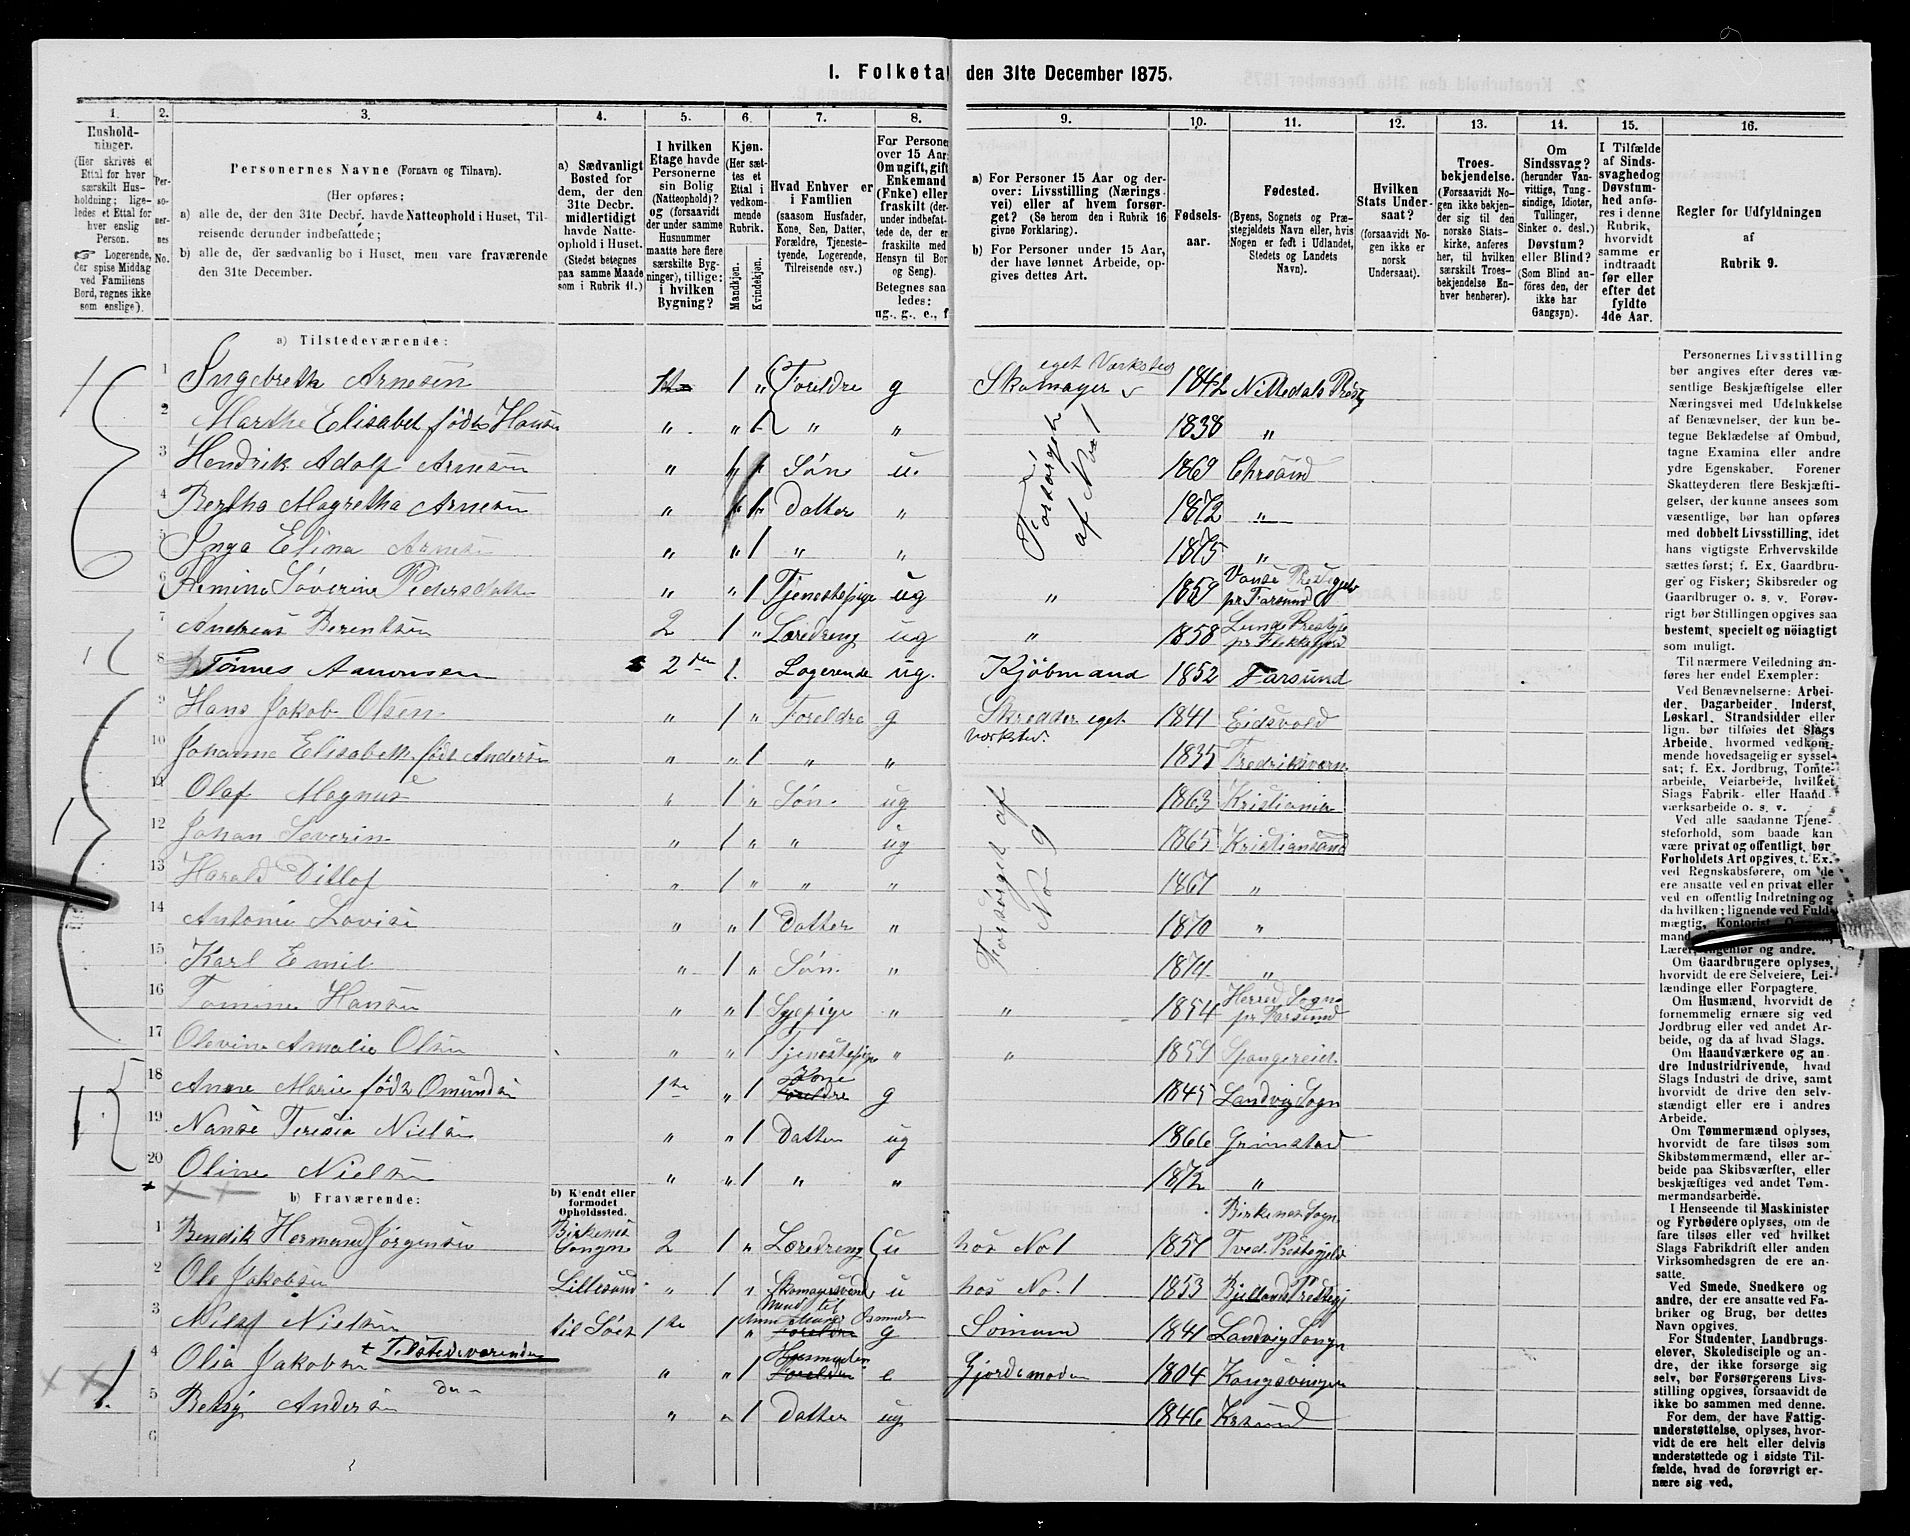 I. Folketal den 31te December 1875.
1. 2. 3. 4. 5. 6. 7. 8. 9. 10. 11. 12. 13. 14. 15. 16.
Husholdninger. (Her skrives et Ettal for hver særskilt Husholdning; ligeledes et Ettal for hver enslig Person. Logerende, der spise Middag ved Familiens Bord, regnes ikke som enslige).
Personernes No.
Personernes Navne (Fornavn og Tilnavn).
(Her opføres:
a) alle de, der den 31te Decbr. havde Natteophold i Huset, Tilreisende derunder indbefattede;
b) alle de, der sædvanlig bo i Huset, men vare fraværende den 31te December.
a) Sædvanligt Bosted for dem, der den 31te Decbr. midlertidigt havde Natteophold i Huset. (Stedet betegnes paa samme Maade som i Rubrik 11.)
I hvilken Etage havde Personerne sin Bolig (Natteophold)? og (forsaavidt der under samme Husnummer maatte høre flere særskilte Bygninger), tillige: i hvilken Bygning?
Kjøn. (Her sættes et Ettal i vedkommende Rubrik.
Mandkjøn. Kvindekjøn.
Hvad Enhver er i Familien (saasom Husfader, Kone, Søn, Datter, Forældre, Tjenestetyende, Logerende, Tilreisende osv.)
For Personer over 15 Aar: Om ugift, gift, Enkemand (Enke) eller fraskilt
Betegnes saaledes: ug., g., e., f.
a) For Personer 15 Aar og derover: Livsstilling (Næringsvei) eller af hvem forsørget? (Se herom den i Rubrik 16 givne Forklaring).
b) For Personer under 15 Aar, der have lønnet Arbeide, opgives dettes Art.
Fødselsaar.
Fødested. (Byens, Sognets og Præstegjeldets Navn eller, hvis Nogen er født i Udlandet, Stedets og Landets Navn).
Hvilken Stats Undersaat? (forsaavidt Nogen ikke er norsk Undersaat).
Troesbekjendelse. (Forsaavidt Nogen ikke bekjender sig til den norske Statskirke, anføres her, til hvilken særskilt Troesbekjendelse Enhver henhører).
Om Sindssvag? (herunder Vanvittige, Tungsindige, Idioter, Tullinger, Sinker o. desl.) Døvstum? eller Blind? (Som Blind anføres den, der ikke har Gangsyn).
I Tilfælde af Sindssvaghed og Døvstumhed anføres i denne Rubrik, hvorvidt samme er indtraadt før eller efter det fyldte 4de Aar.
Regler for Udfyldningen af Rubrik 9.
a) Tilstedeværende:
1 Ingebreth Arnesen 1 „ Foreldre g Skomager eget Værksted 1842 Nittedals
2 Marthe Elisabet født Hansen „ „ 1 „ „ 1838 „
3 Hendrik Adolf Arnesen „ Søn u. Forsørget af No 1 1869 Chrsand
4 Bertha Magretha Arnesen „ Datter „ 1872 „
5 Inga Elina Arnesen „ „ 1 „ „ 1875 „
6 Søverine Pedersdatter „ „ 1 Tjenestepige ug „ 1859 Vanse Prestegjel pr Farsund
7 Andreas Berentsen 2 1 „ Læredreng ug „ 1858 Lunde Prestgj pr Flekkefjord
8 Tønnes Aanonsen 2den 1. Logerende ug. Kjøbmand 1852 Farsund
9 Hans Jakob Olsen „ 1 „ Foreldre g Skredder eget værksted. 1841 Eidsvold
10 Johanne Elisabeth født Andersen „ „ 1 „ „ 1835 Fredriksværn
11 Olaf Magnus „ 1 „ Søn ug Forsørget af No 9 1863 Kristiania
12 Johan Severin „ 1 „ „ ug 1865 Kristiansand
13 Harald Ditlof „ 1 „ „ „ 1867 „
14 Antonie Lovise „ „ 1 Datter „ 1870 „
15 Karl Emil „ 1 „ Søn „ 1874 „
16 Tomine Hansen „ „ 1 Sypige „ „ 1854 Herred Sogn pr Farsund
17 Olevine Amalie Olsen „ „ 1 Tjenestepige „ „ 1859 Spangereid
18 Anne Marie født Omundsen 1ste „ 1 Kone Foreldre g 1845 Landvig Sogn
19 Nanse Teresia Nielsen „ „ 1 Datter ug 1866 Grimstad
20 Oline Nielsen „ „ 1 „ „ 1872 „
b) Fraværende:
b) Kjendt eller formodet Opholdssted.
1 Bendik Herman Jørgensen Birkenes Songne 2 1 „ Læredreng u hos No 1 1857 Birkenes Sogn Tved. Prestegjeld
2 Ole Jakobsen Lillesand „ 1 „ Skomagersvend u hos No. 1 1853
3 Nils Nielsen til Søes 1ste 1 „ Mand til Anne Marie Osmundsen Foreldre g Sømand 1841 Landvig Songn
4 Olia Jakobsen + Tilstedeværende „ „ 1 Husmoder Foreldre e Gjordemoder 1804 Kongsvinger
5 Betsy Andersen do „ „ 1 Datter ug 1846 Krsund
6
Personernes Livsstilling bør angives efter deres væsentlige Beskjæftigelse eller Næringsvei med Udelukkelse af Benævnelser, der kun betegne Beklædelse af Ombud, tagne Examina eller andre ydre Egenskaber. Forener Skatteyderen flere Beskjæftigelser, der kunne ansees som væsentlige, bør han opføres med dobbelt Livsstilling, idet hans vigtigste Erhvervskilde sættes først; f. Ex. Gaardbruger og Fisker; Skibsreder og Gaardbruger o. s. v. Forøvrigt bør Stillingen opgives saa bestemt, specielt og nøiagtigt som muligt.
Til nærmere Veiledning anføres her endel Exempler:
Ved Benævnelserne: Arbeider, Dagarbeider, Inderst, Løskarl, Strandsidder eller lign. bør tilføies det Slags Arbeide, hvormed vedkommende hovedsagelig er sysselsat; f. Ex. Jordbrug, Tomtearbeide, Veiarbeide, hvilket Slags Fabrik- eller Haandværksarbeide o. s. v.
Ved alle saadanne Tjenesteforhold, som baade kan være privat og offentligt, bør Forholdets Art opgives, t. Ex. ved Regnskabsførere, om de ere ansatte ved en privat eller ved en offentlig Indretning og da hvilken; lignende ved Fuldmægtig, Kontorist,
Lærer, Ingeniør og andre.
Om Gaardbrugere oplyses, hvorvidt de ere Selveiere, Leilændinge eller Forpagtere.
Om Husmænd, hvorvidt de fornemmelig ernære sig ved Jordbrug eller ved andet Arbeide, og da af hvad Slags.
Om Haandværkere og andre Industridrivende, hvad Slags Industri de drive, samt hvorvidt de drive den selvstændigt eller ere i andres Arbeide.
Om Tømmermænd oplyses, hvorvidt de fare tilsøs som Skibstømmermænd, eller arbeide paa Skibsværfter, eller beskjæftiges ved andet Tømmermandsarbeide.
I Henseende til Maskinister og Fyrbødere oplyses, om de fare tilsøs eller ved hvilket Slags Fabrikdrift eller anden Virksomhedsgren de ere ansatte.
Ved Smede, Snedkere og andre, der ere ansatte ved Fabriker og Brug, bør dettes Navn opgives.
For Studenter, Landbrugselever, Skoledisciple og andre, der ikke forsørge sig selv, bør Forsørgerens Livsstilling opgives, forsaavidt de ikke bo sammen med denne.
For dem, der have Fattigunderstøttelse, oplyses, hvorvidt de ere helt eller delvis understøttede og i sidste Tilfælde, hvad de forøvrigt ernære sig ved.